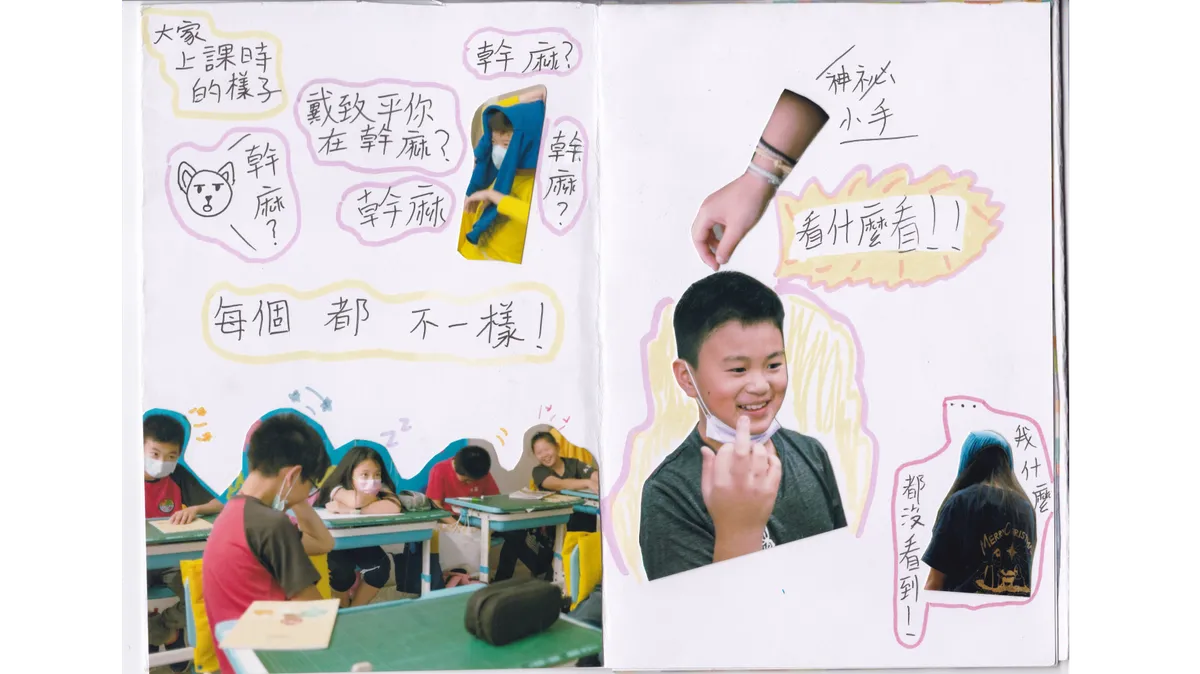 大家
上課時
的樣子
幹麻?
戴致平你
在幹麻?
幹麻?
幹麻?
幹麻
每個 都 不一樣!
神祕
小手
看什麼看!!
...
我什麼
都沒看到!